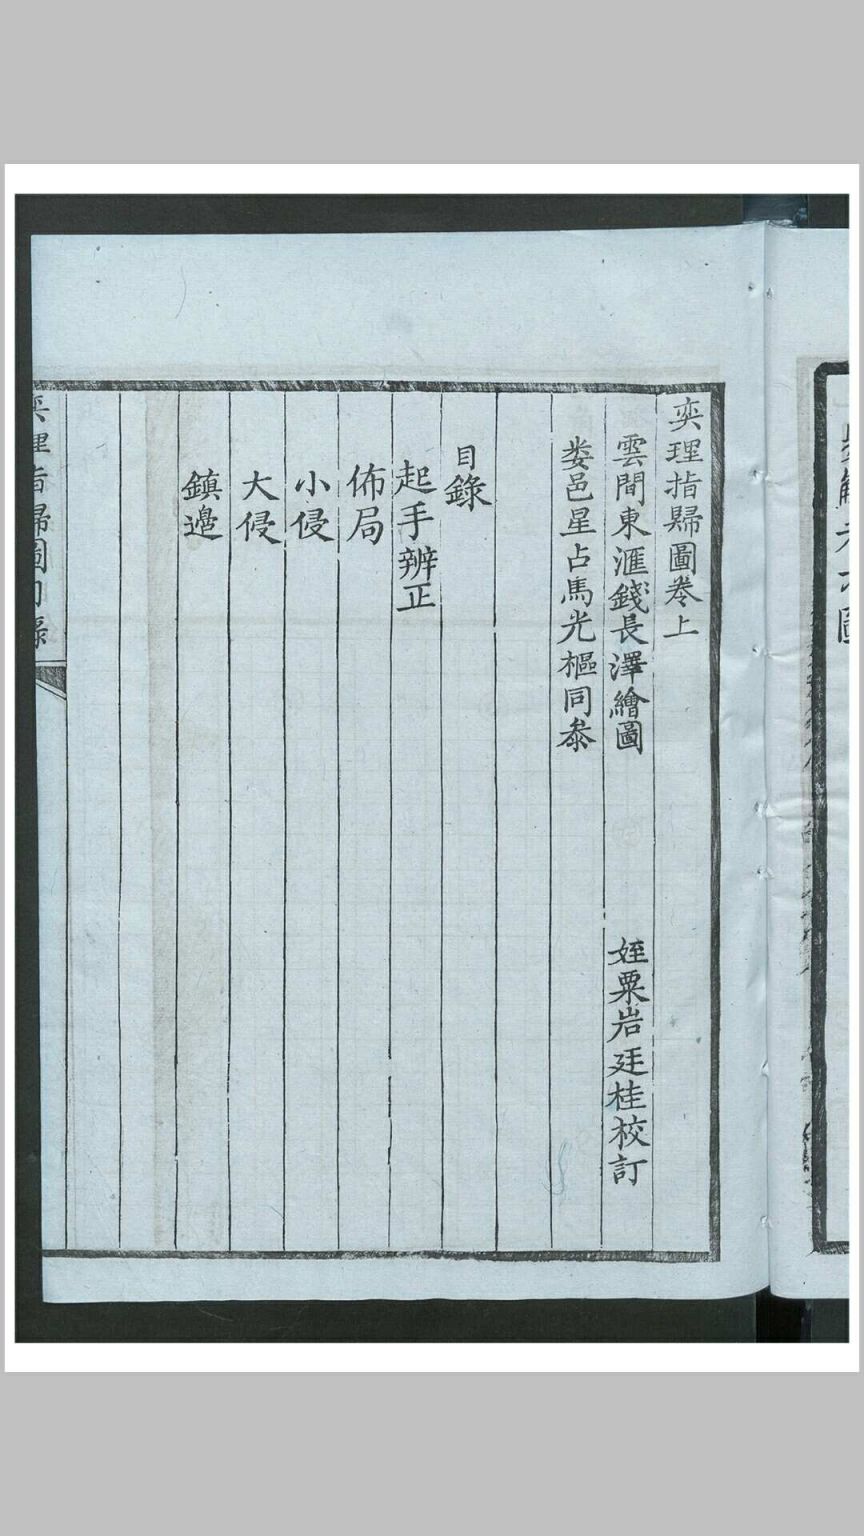 奕理指歸圖卷上
雲間東滙錢長澤繪圖
姪粟岩廷桂校訂
婁邑星占馬光樞同叅
目錄
起手辨正
佈局
小侵
大侵
鎮邊
奕理指歸圖目錄